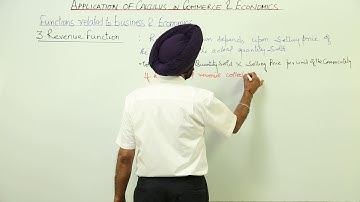 APPLICATION OF CALCULUS IN COMMERCE & ECONOMICS
Functions related to business & Economics
3 Revenue Function : depends upon Selling Price of
the actual quantity sold
Quantity Sold × Selling Price per unit of the Commodity
If revenue collec